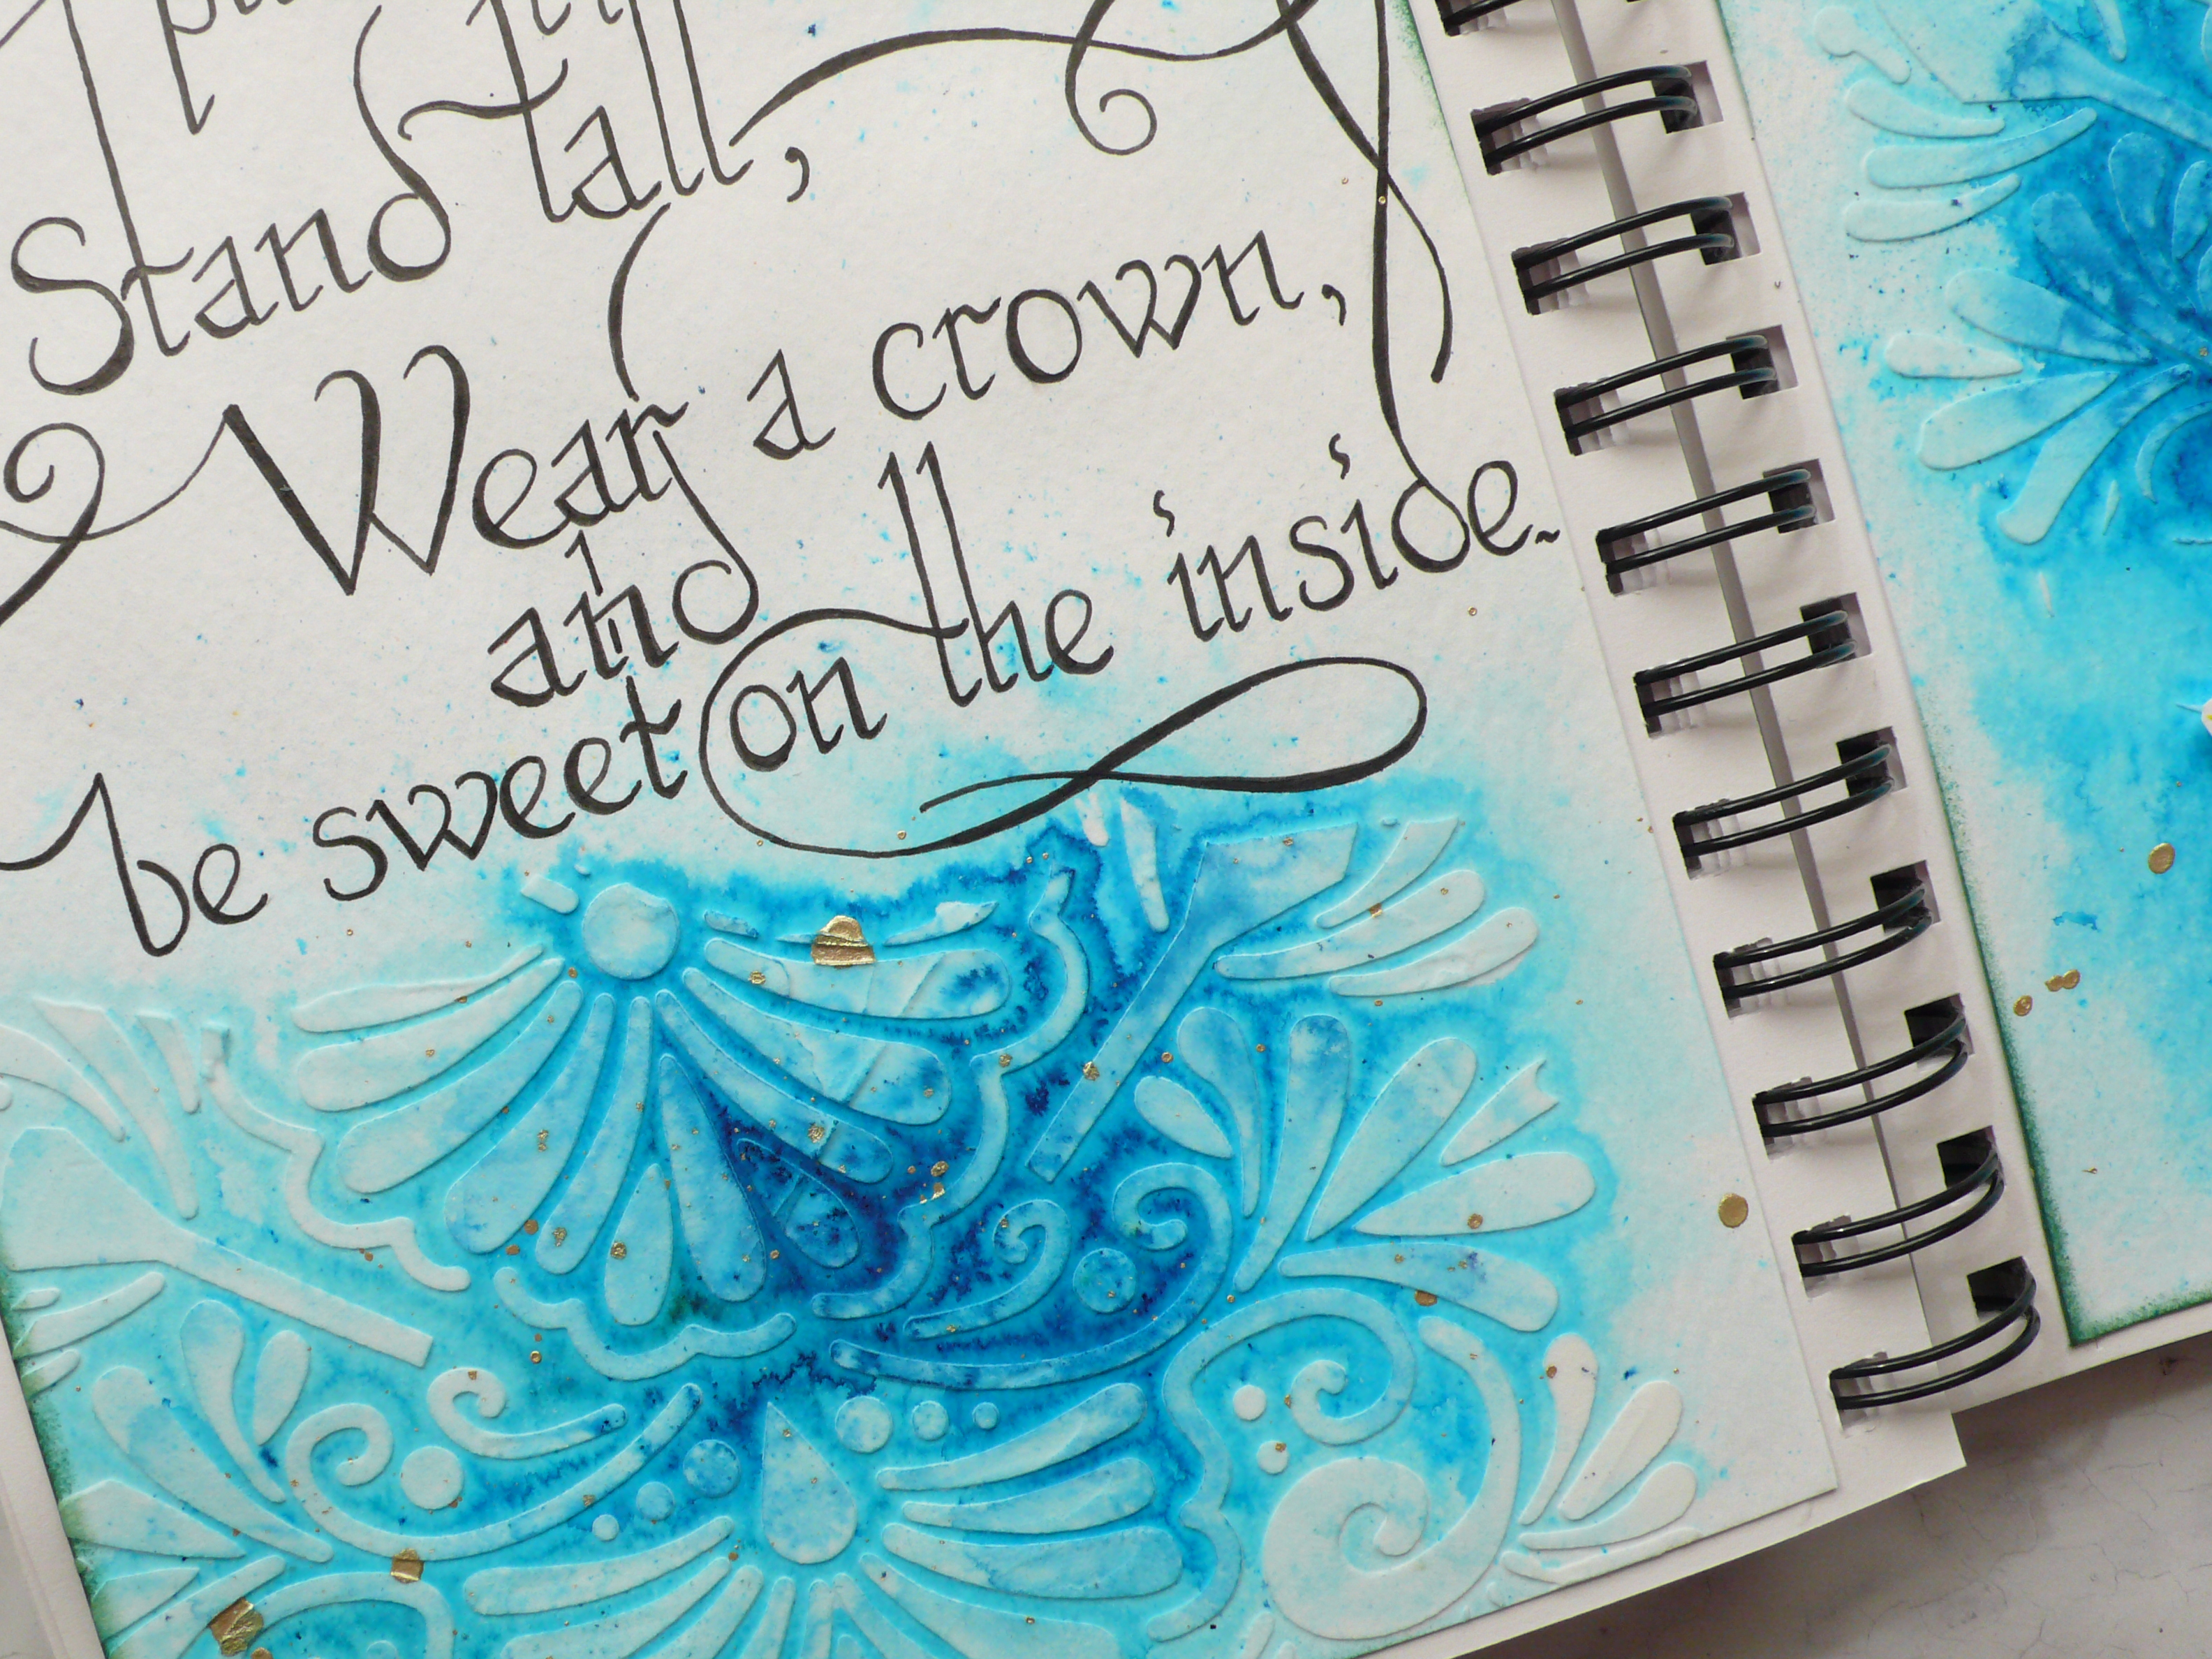 Stand tall,
Wear a crown,
and
be sweet on the inside.